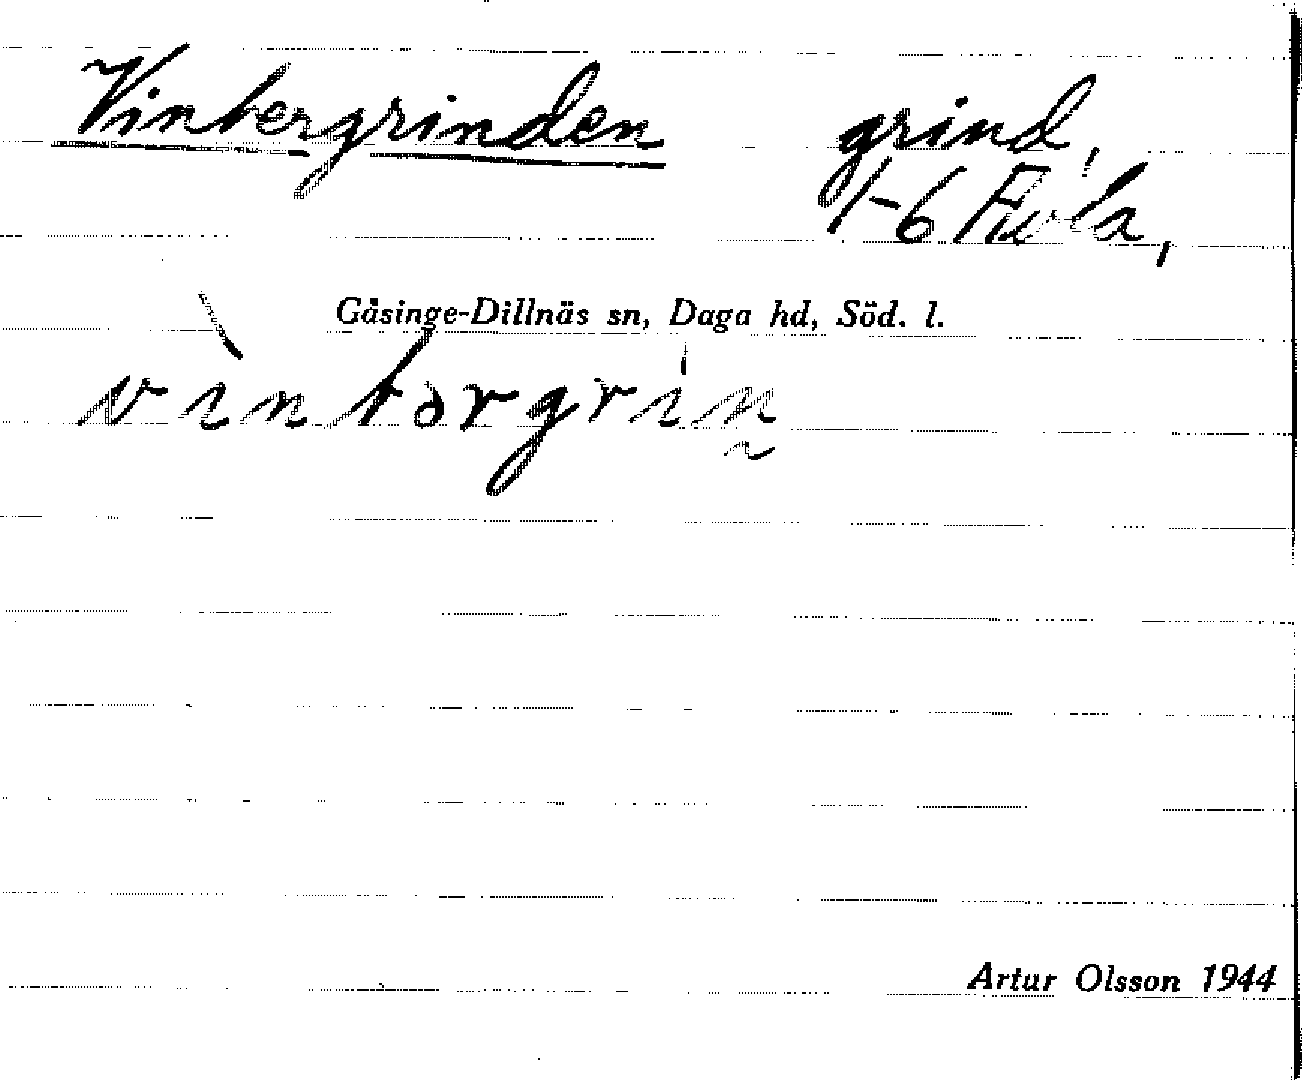 Vintergrinden grind,
1-6
Gåsinge-Dillnäs sn, Daga hd, Söd. l.
vìntərgrin̰
Artur Olsson 1944